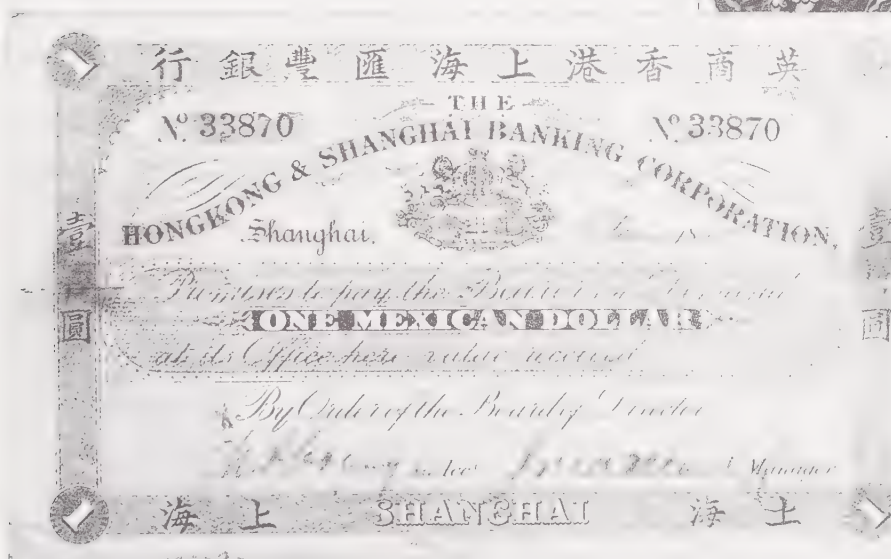 英商香港上海匯豐銀行
THE
Nº 33870 Nº 33870
HONGKONG & SHANGHAI BANKING CORPORATION.
Shanghai.
壹圓
壹圓
Promises to pay the Bearer on Demand
ONE MEXICAN DOLLAR
at its Office here value received
By Order of the Board of Directors
Manager
1
1
上海 SHANGHAI 上海